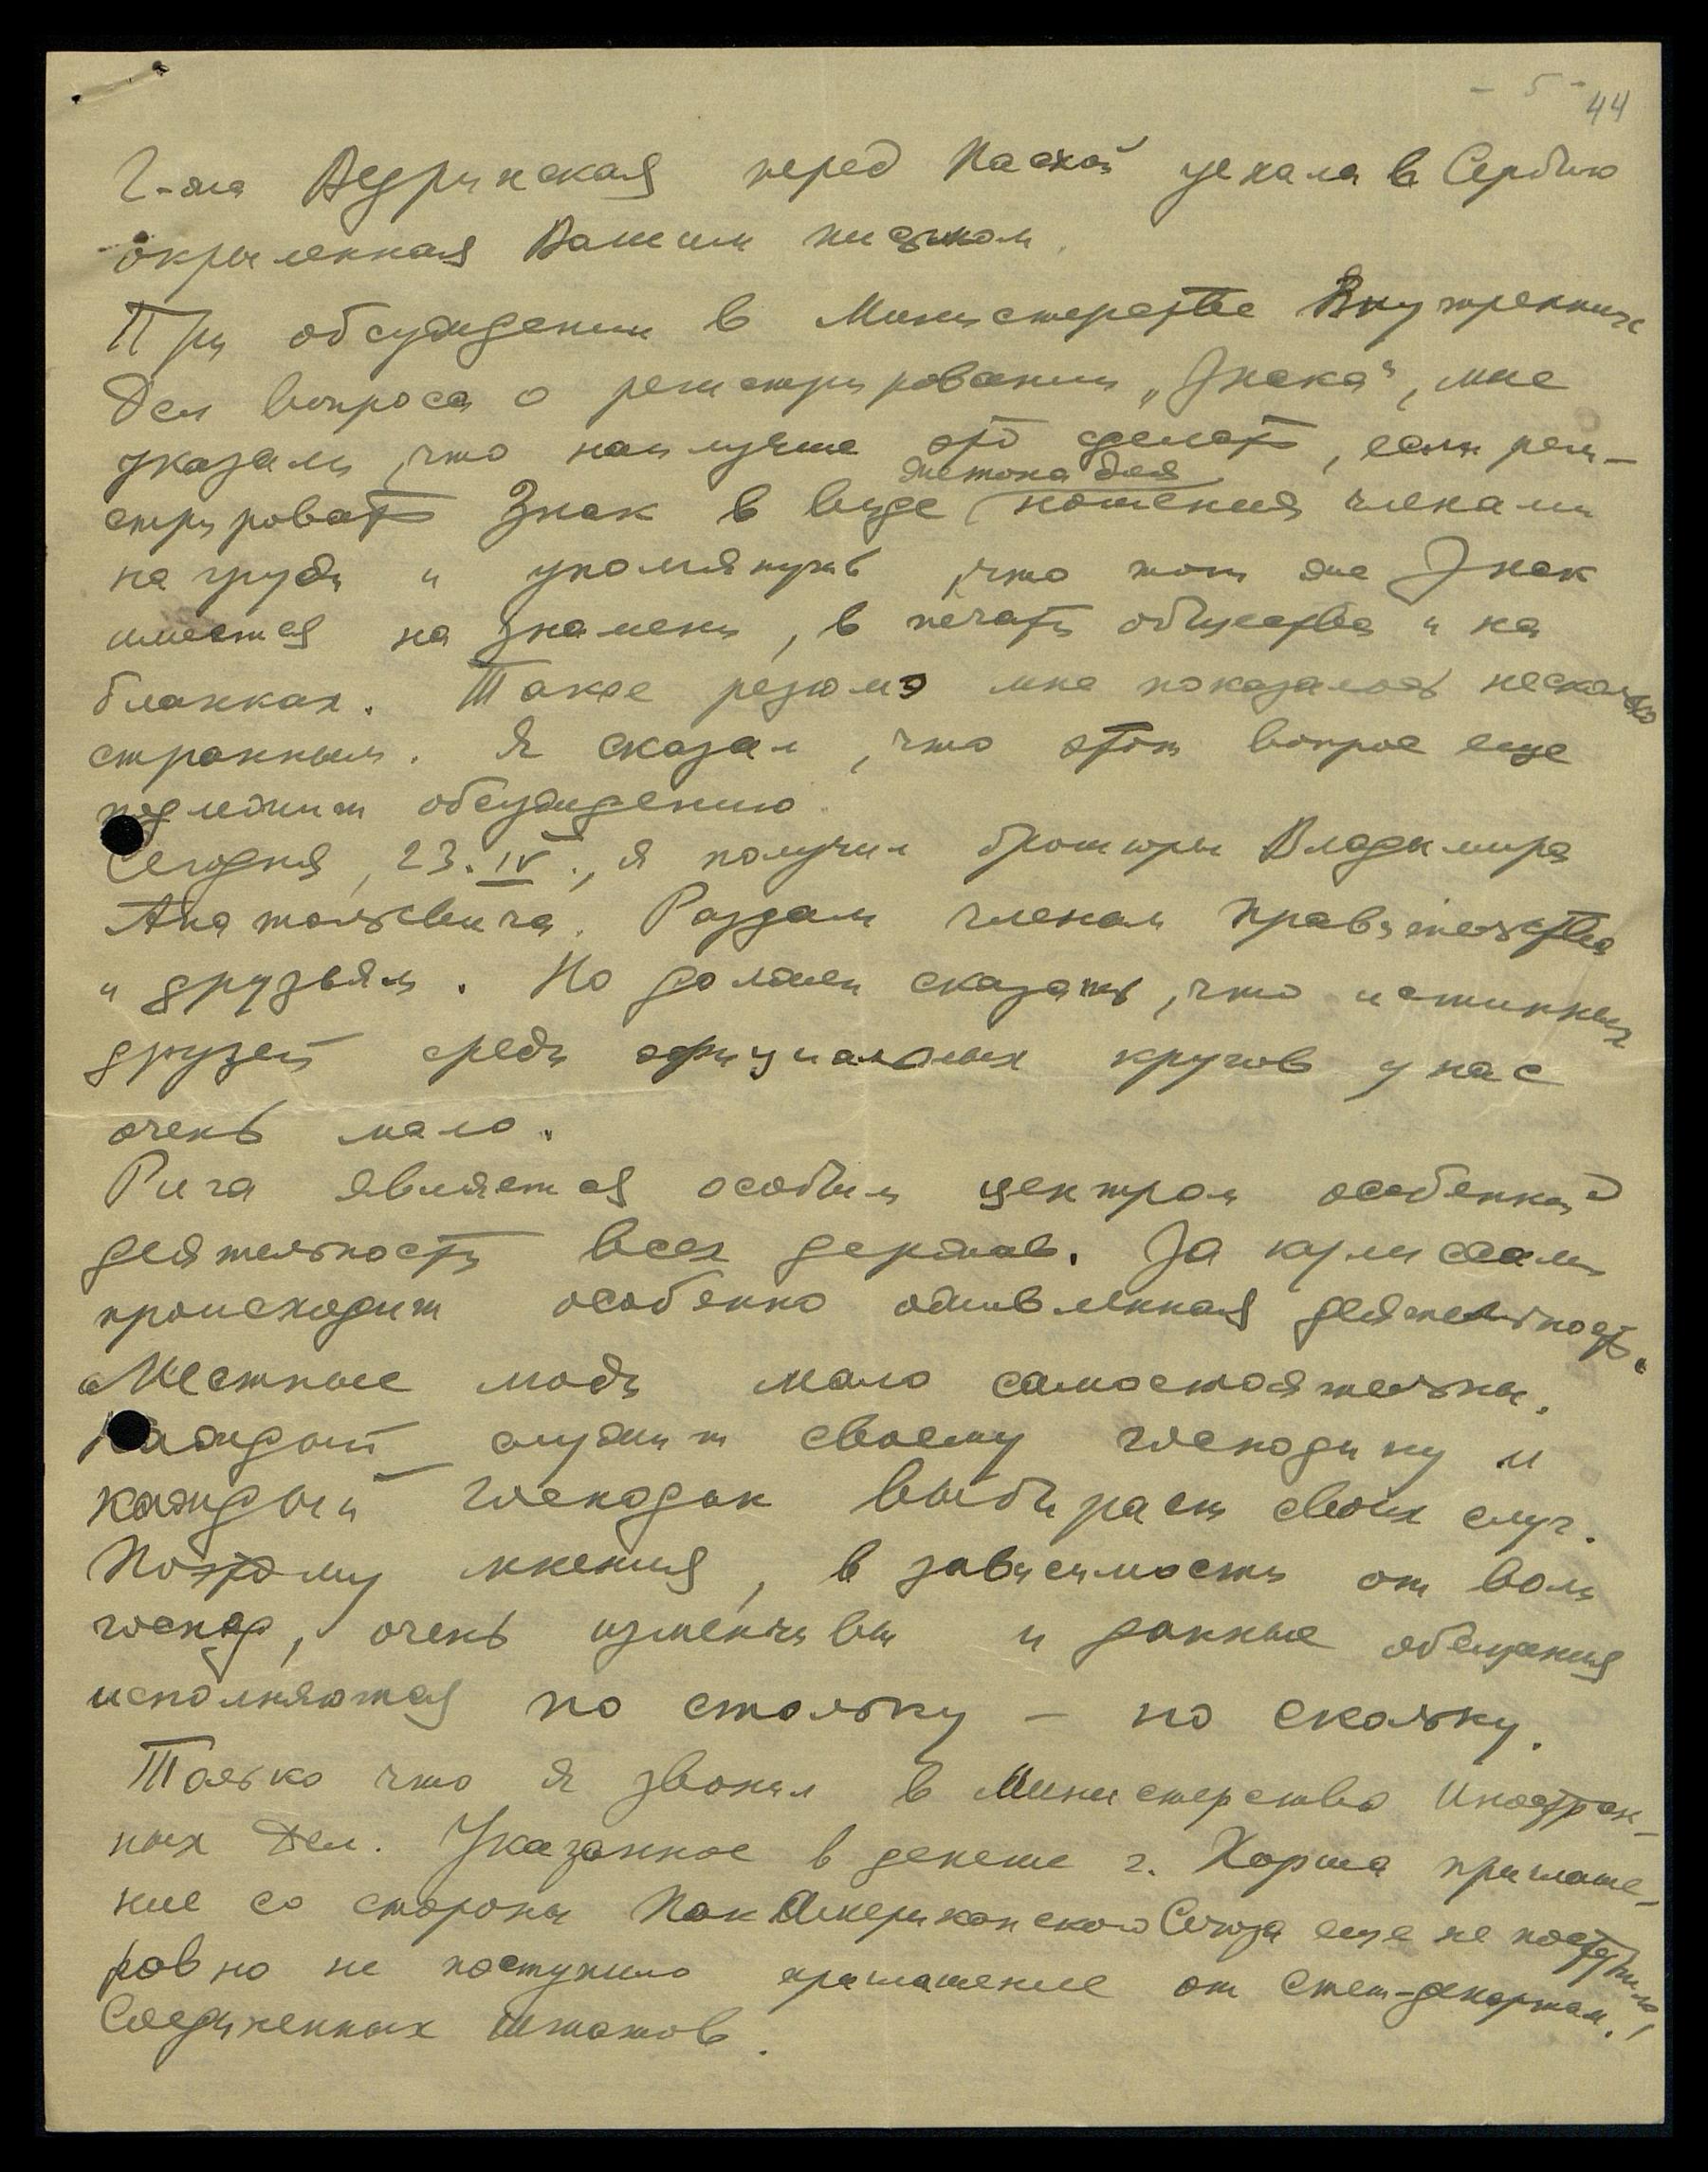 - 5 -
44
Г-жа Ведринская перед Пасхой уехала в Сербию
окрыленная Вашим письмом.
При обсуждении в Министерстве Внутренних
Дел вопроса о регистрировании „Знака“, мне
указали, что наилучше это сделать, если реги-
жетона для
стрировать Знак в виде ношения членами
на груди и упомянуть, что тот же Знак
имеется на знамени, в печати общества и на
бланках. Такое резюмэ мне показалось несколько
странным. Я сказал, что этот вопрос еще
подлежит обсуждению.
Сегодня, 23.IV., я получил брошюры Владимира
Анатольевича. Раздам членам правительства
и друзьям. Но должен сказать, что истинных
друзей среди официальных кругов у нас
очень мало.
Рига является особым центром особенной
деятельности всех держав. За кулисами
происходит особенно оживленная деятельность.
Местные люди мало самостоятельны.
Каждый служит своему господину и
каждый господин выбирает своих слуг.
Поэтому мнения, в зависимости от воли
господ, очень изменчивы и данные обещания
исполняются по стольку – по скольку.
Только что я звонил в Министерство Иностран-
ных Дел. Указанное в депеше г. Хорша приглаше-
ние со стороны Пан Американского Союза еще не поступило,
равно не поступило приглашение от Стет-департам.
Соединенных Штатов.